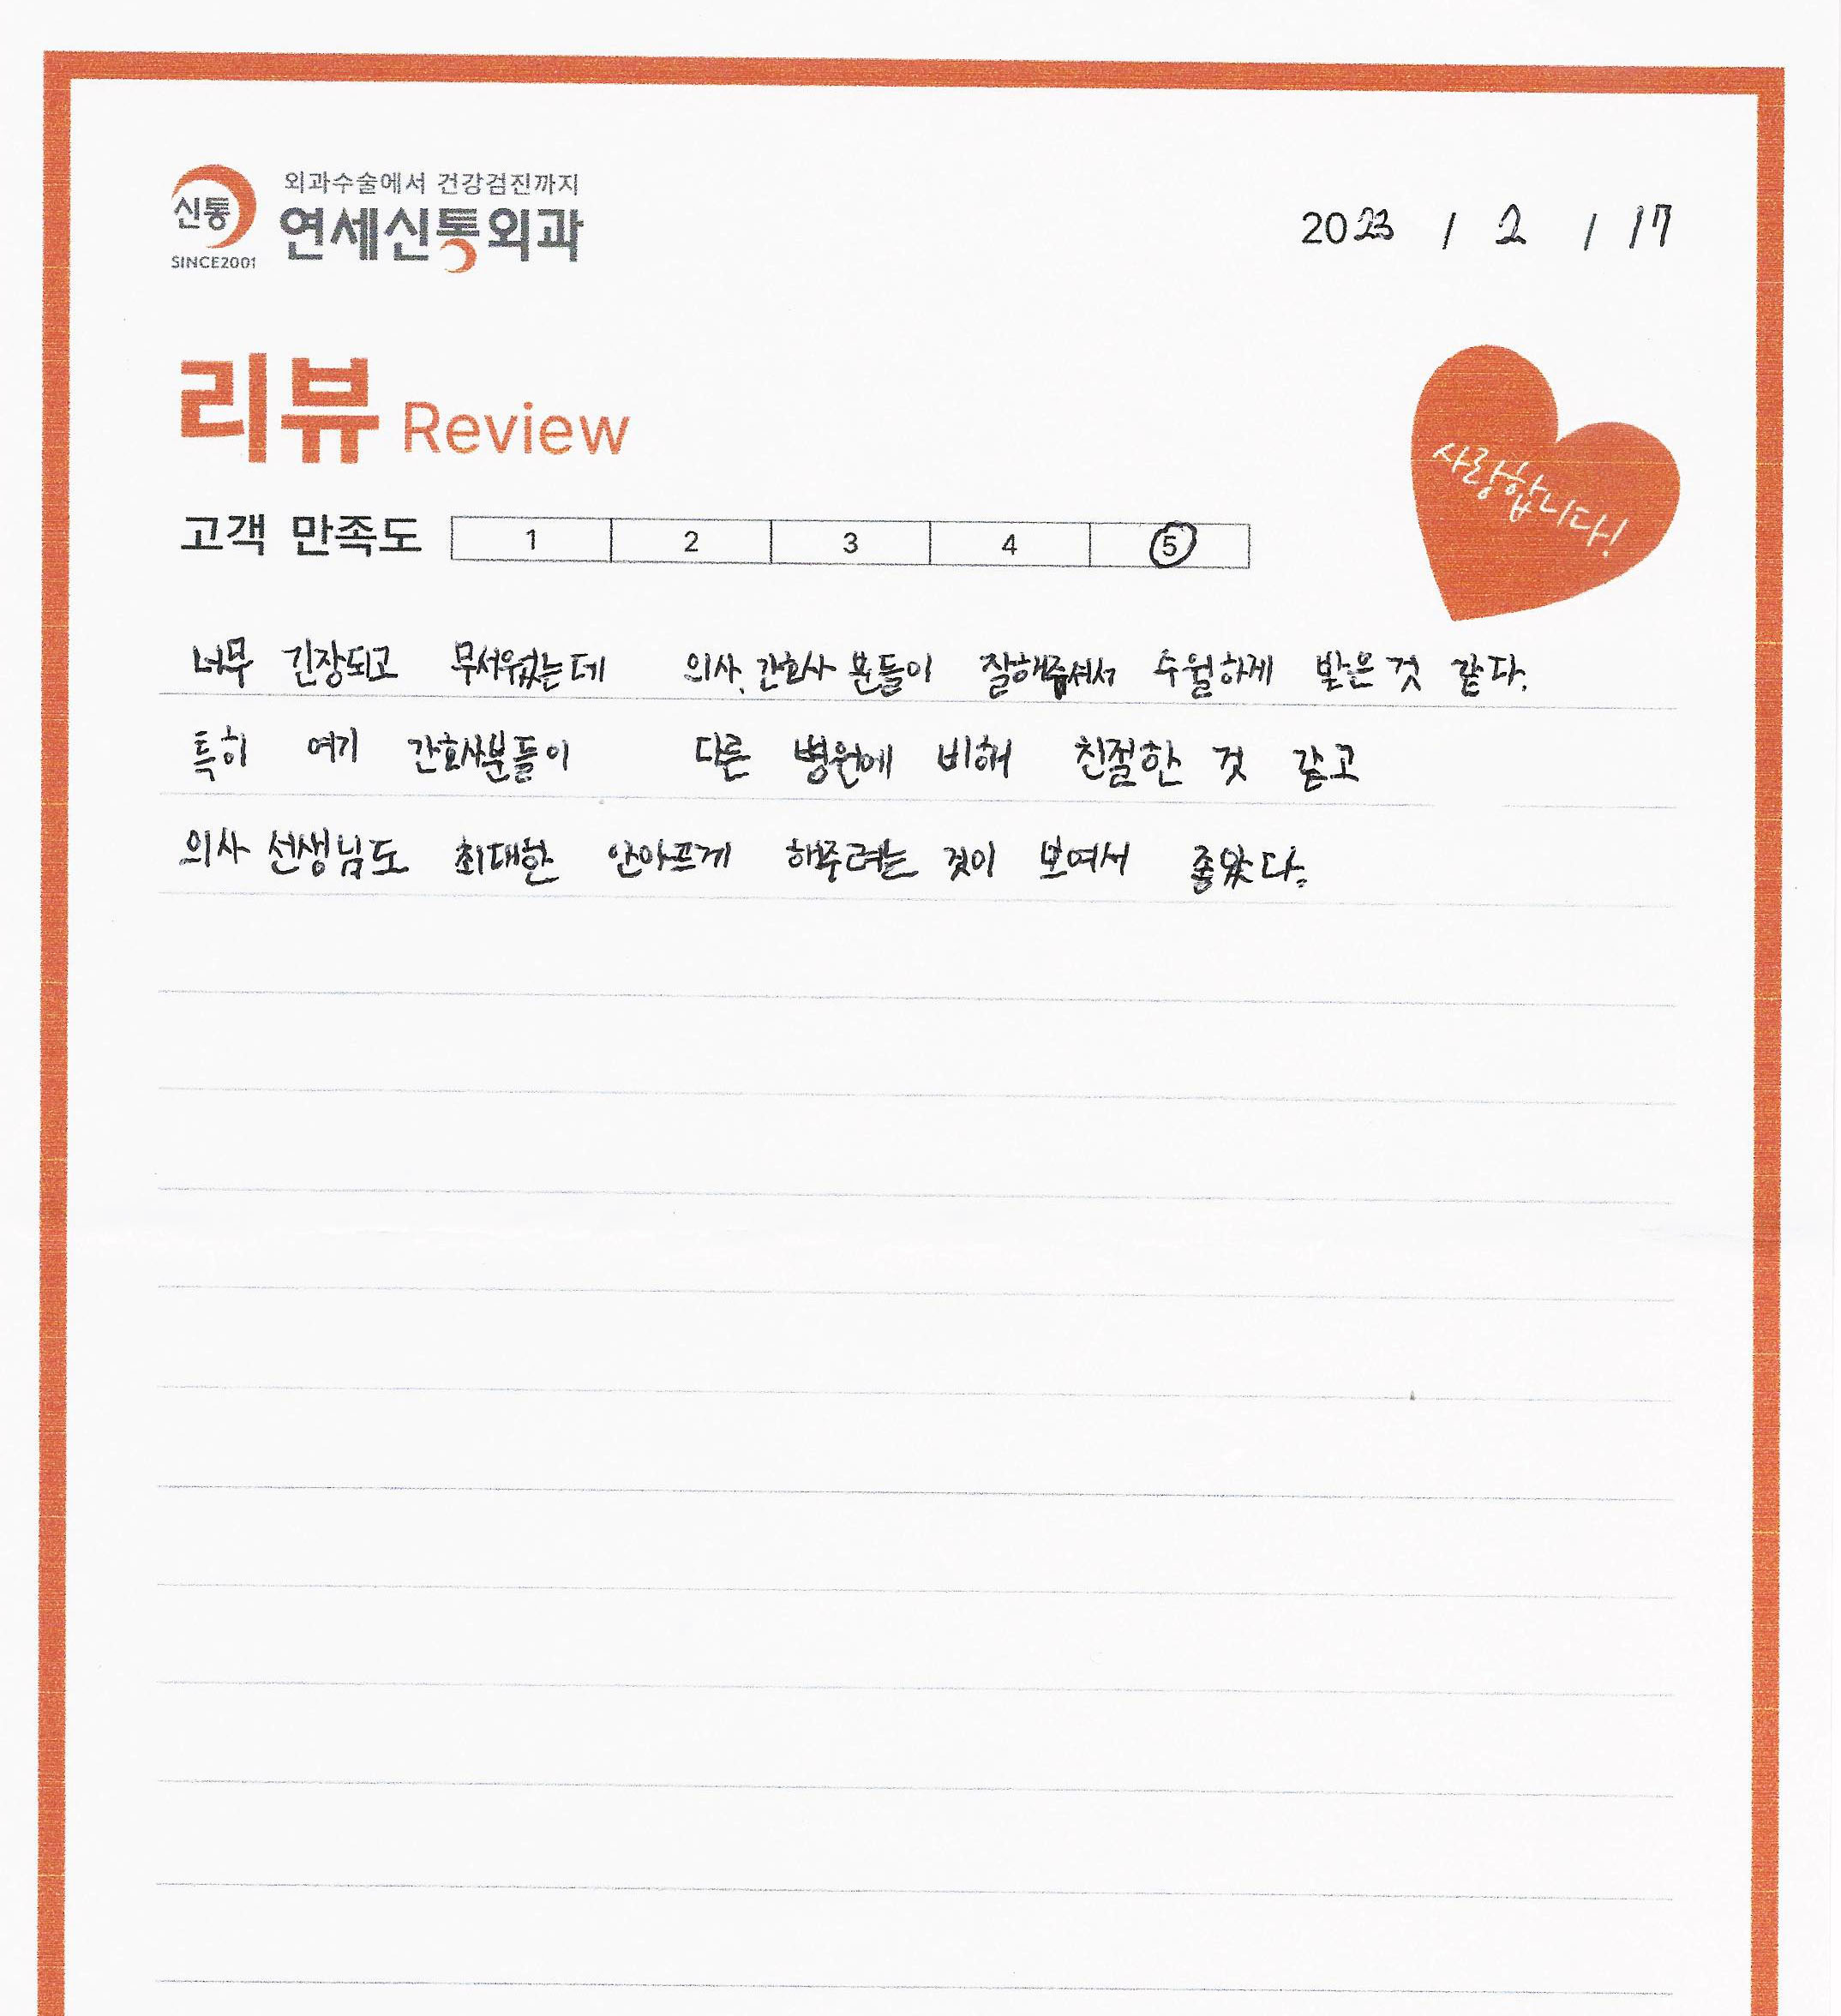 외과수술에서 건강검진까지
신통 연세신통외과
SINCE2001
2023 / 2 / 17
리뷰 Review
사랑합니다!
고객 만족도 1 2 3 4 5
너무 긴장되고 무서웠는데 의사, 간호사 분들이 잘해주셔서 수월하게 받은 것 같다.
특히 여기 간호사분들이 다른 병원에 비해 친절한 것 같고
의사 선생님도 최대한 안아프게 해주려는 것이 보여서 좋았다.